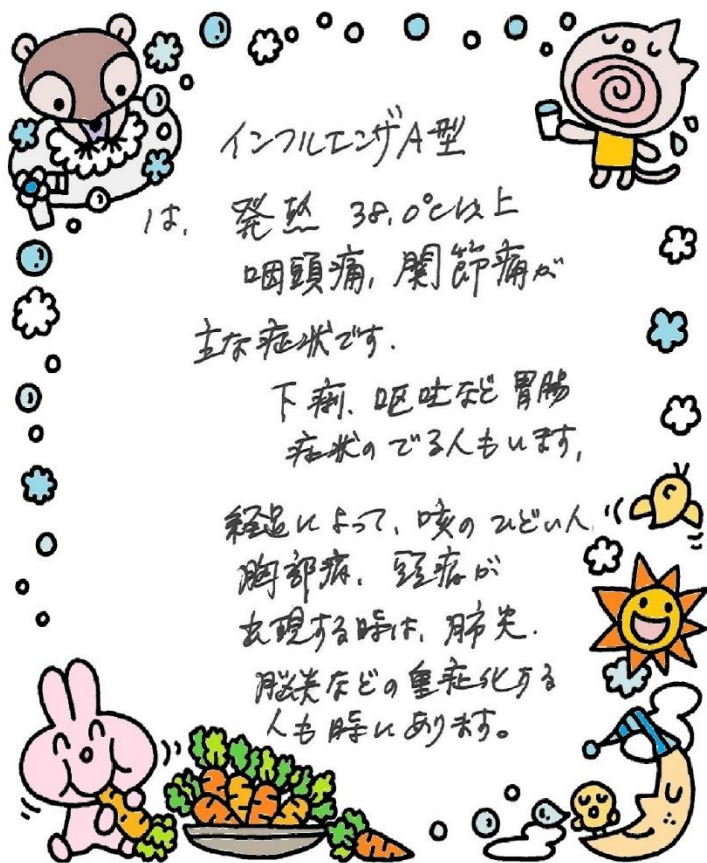 インフルエンザA型
は、発熱 38.0℃以上
咽頭痛、関節痛が
主な症状です.
下痢、嘔吐など胃腸
症状のでる人もいます.
経過によって、咳のひどい人
胸部痛、頭痛が
出現する時は、肺炎.
脳炎などの重症化する
人も時にあります。